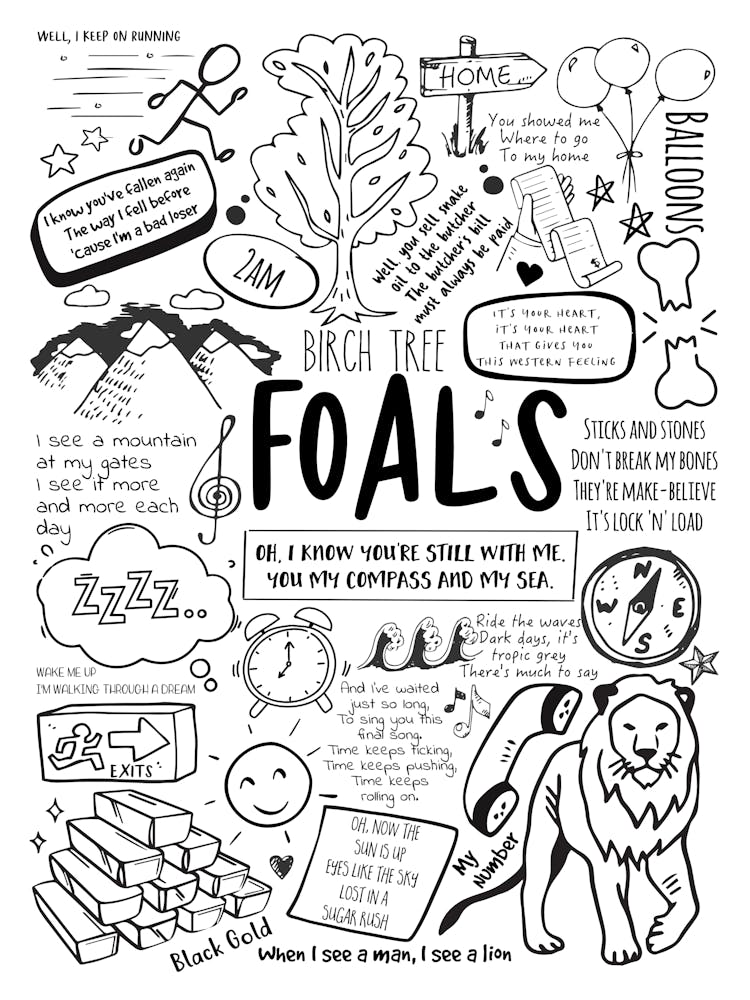 WELL, I KEEP ON RUNNING
HOME
You showed me
Where to go
To my home
BALLOONS
I know you've fallen again
The way I fell before
'cause I'm a bad loser
2AM
Well, you sell snake
oil to the butcher
The butcher's bill
must always be paid
$
IT'S YOUR HEART,
IT'S YOUR HEART
THAT GIVES YOU
THIS WESTERN FEELING
BIRCH TREE
FOALS
I see a mountain
at my gates
I see it more
and more each
day
STICKS AND STONES
DON'T BREAK MY BONES
THEY'RE MAKE-BELIEVE
IT'S LOCK 'N' LOAD
OH, I KNOW YOU'RE STILL WITH ME.
YOU MY COMPASS AND MY SEA.
ZZZZ..
N
W E
S
Ride the waves
Dark days, it's
tropic grey
There's much to say
WAKE ME UP
I'M WALKING THROUGH A DREAM
And I've waited
just so long,
To sing you this
final song.
Time keeps ticking,
Time keeps pushing,
Time keeps
rolling on.
EXITS
My
Number
OH, NOW THE
SUN IS UP
EYES LIKE THE SKY
LOST IN A
SUGAR RUSH
Black Gold
When I see a man, I see a lion